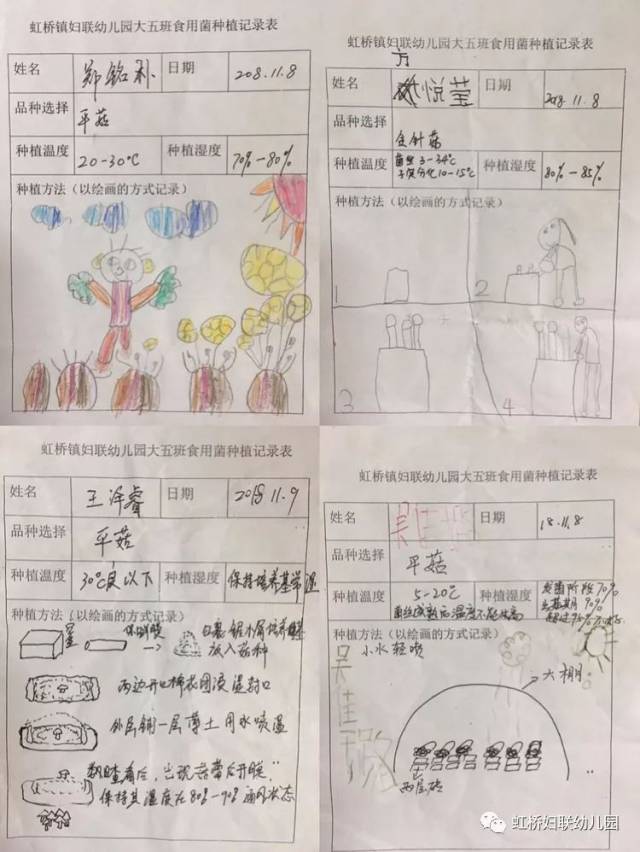 虹桥镇妇联幼儿园大五班食用菌种植记录表
姓名 郑铭朴 日期 208.11.8
品种选择 平菇
种植温度 20-30℃ 种植湿度 70%-80%
种植方法（以绘画的方式记录）
虹桥镇妇联幼儿园大五班食用菌种植记录表
姓名 方悦莹 日期 2018.11.8
品种选择 金针菇
种植温度 菌丝3-34℃ 子实分化10-15℃ 种植湿度 80%-85%
种植方法（以绘画的方式记录）
1 2
3 4
虹桥镇妇联幼儿园大五班食用菌种植记录表
姓名 王泽睿 日期 2018 11.9
品种选择 平菇
种植温度 30℃以下 种植湿度 保持培养基常湿
种植方法（以绘画的方式记录）
放入菇种
两边开口棉花团浸湿封口
外层铺一层薄土用水喷湿
保持其湿度在80%-90%通风状态
虹桥镇妇联幼儿园大五班食用菌种植记录表
姓名 日期 18.11.8
品种选择 平菇
种植温度 5-20℃ 种植湿度 70%
90%
种植方法（以绘画的方式记录）
小水轻喷
吴佳璐
大棚
两层砖
虹桥妇联幼儿园